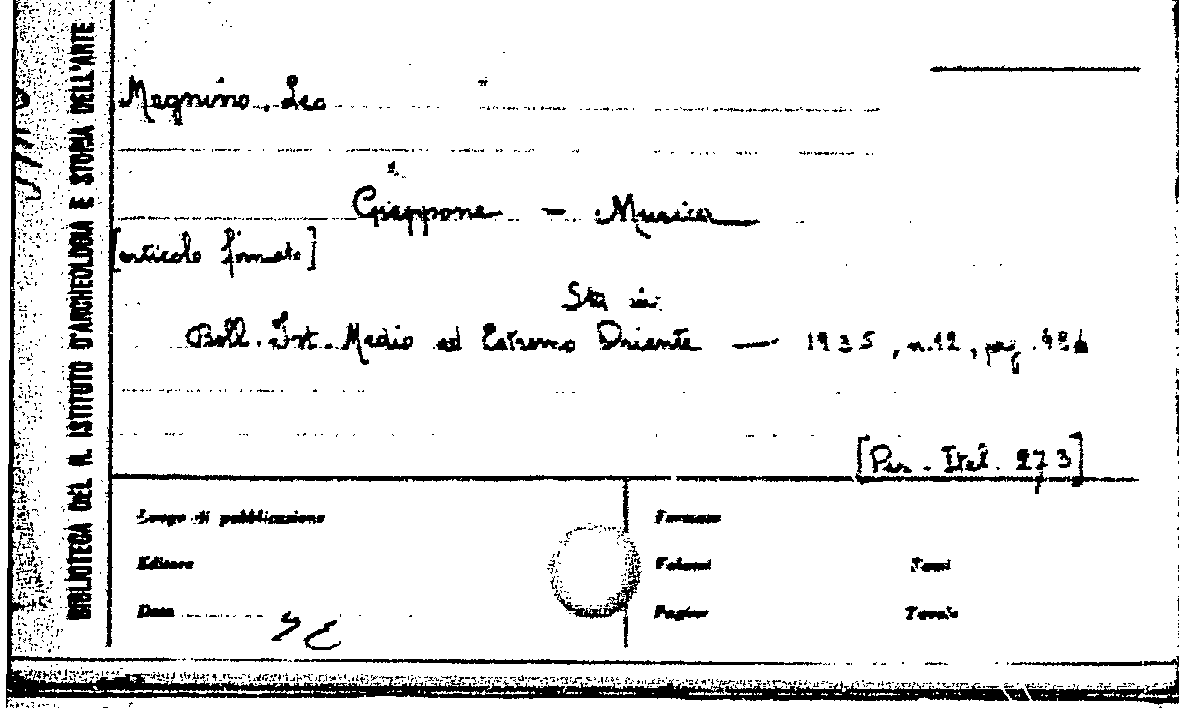 BIBLIOTECA DEL R. ISTITUTO D'ARCHEOLOGIA E STORIA DELL'ARTE
Magnino. Leo
Giappone - Musica
[articolo firmato]
Sta in:
Boll. Ist. Medio ed Estremo Oriente — 1935, n.12, pag.
[Per. Ital. 273]
Luogo di pubblicazione
Formato
Editore
Volumi
Tomi
Data
Pagine
Tavole